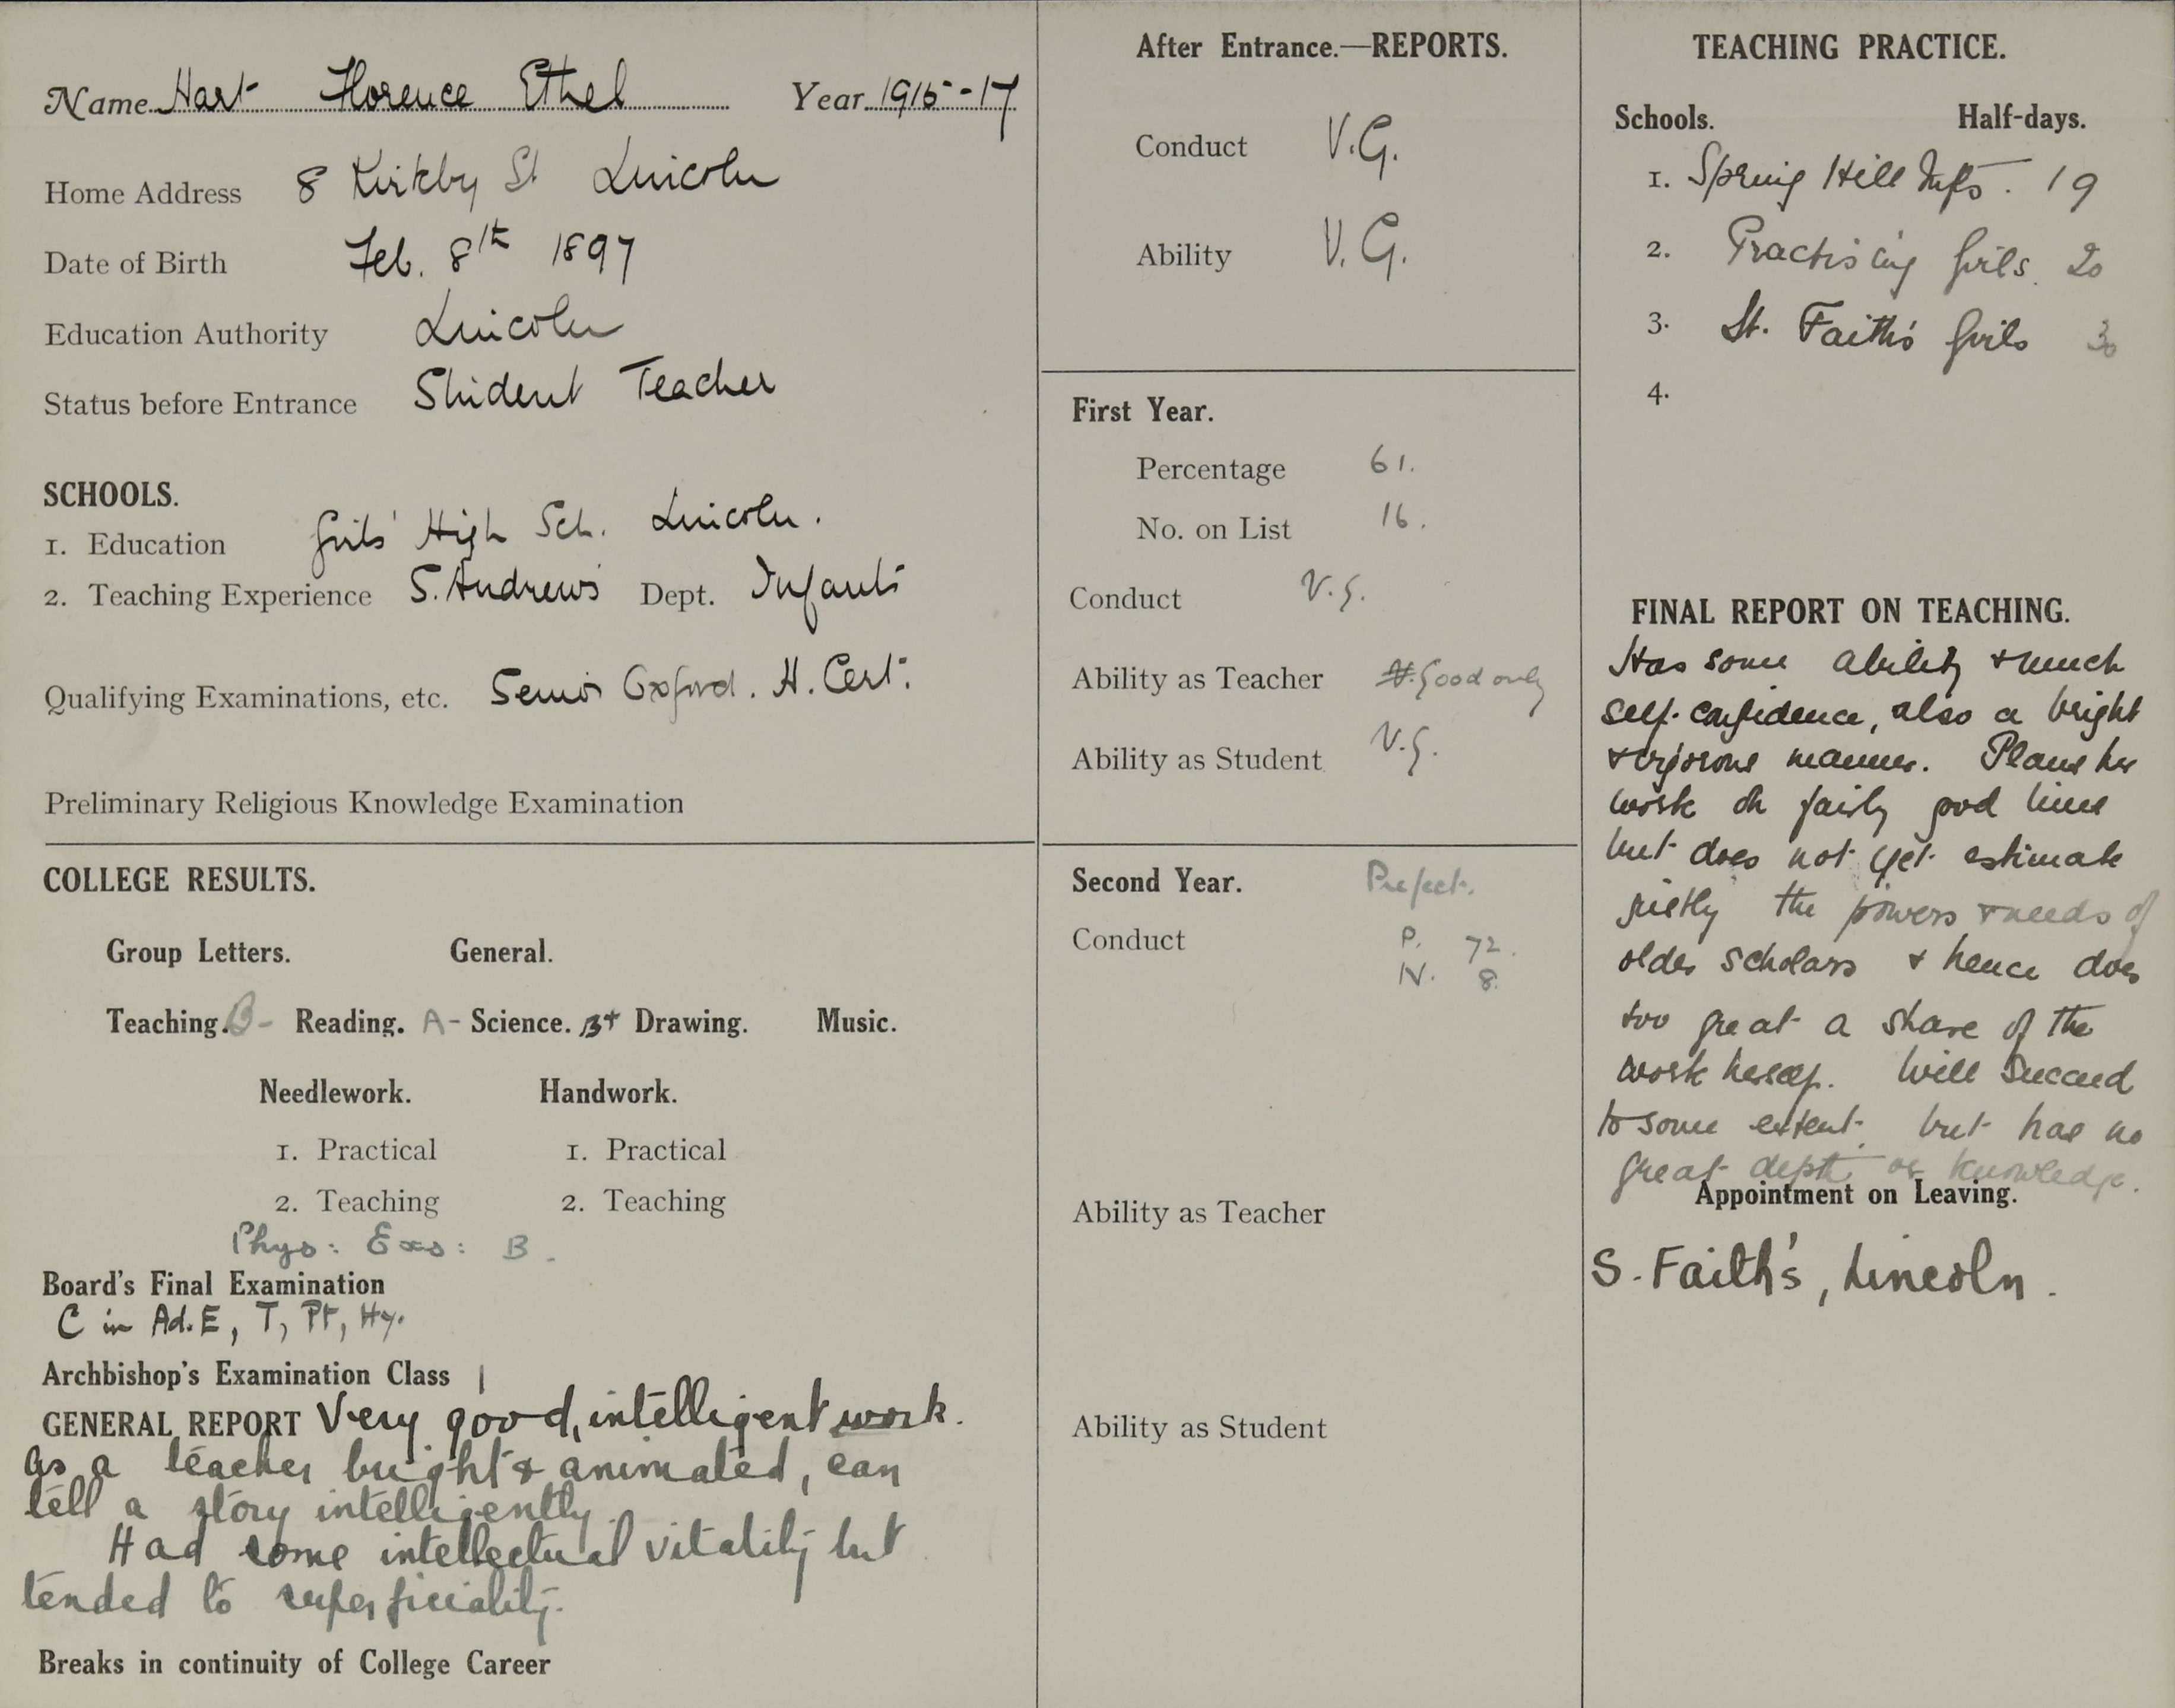 Name Hart Florence Ethel Year 1915-17
Home Address 8 Kirkby St Lincoln
Date of Birth Feb. 8th 1897
Education Authority Lincoln
Status before Entrance Student Teacher
SCHOOLS.
1. Education Girls' High Sch. Lincoln.
2. Teaching Experience S. Andrews Dept. Infants
Qualifying Examinations, etc. Senior Oxford. H. Cert.
Preliminary Religious Knowledge Examination
COLLEGE RESULTS.
Group Letters. General.
Teaching. B- Reading. A- Science. B+ Drawing. Music.
Needlework. Handwork.
1. Practical 1. Practical
2. Teaching 2. Teaching
Phys: Exs: B.
Board's Final Examination
C in Ad. E, T, Pt, Hy.
Archbishop's Examination Class 1
GENERAL REPORT Very good, intelligent work.
As a teacher bright & animated, can
tell a story intelligently.
Had some intellectual vitality but
tended to superficiality.
Breaks in continuity of College Career
After Entrance.—REPORTS.
Conduct V.G.
Ability V.G.
First Year.
Percentage 61.
No. on List 16.
Conduct V.G.
Ability as Teacher Good only
Ability as Student V.G.
Second Year. Prefect.
Conduct P. 72.
N. 8.
Ability as Teacher
Ability as Student
TEACHING PRACTICE.
Schools. Half-days.
1. Spring Hill Infts. 19
2. Practising Girls. 20
3. St. Faith's Girls 30
4.
FINAL REPORT ON TEACHING.
Has some ability & much
self-confidence, also a bright
& vigorous manner. Plans her
work on fairly good lines
but does not yet estimate
justly the powers & needs of
older scholars & hence does
too great a share of the
work herself. Will succeed
to some extent, but has no
great depth or knowledge.
Appointment on Leaving.
S. Faith's, Lincoln.